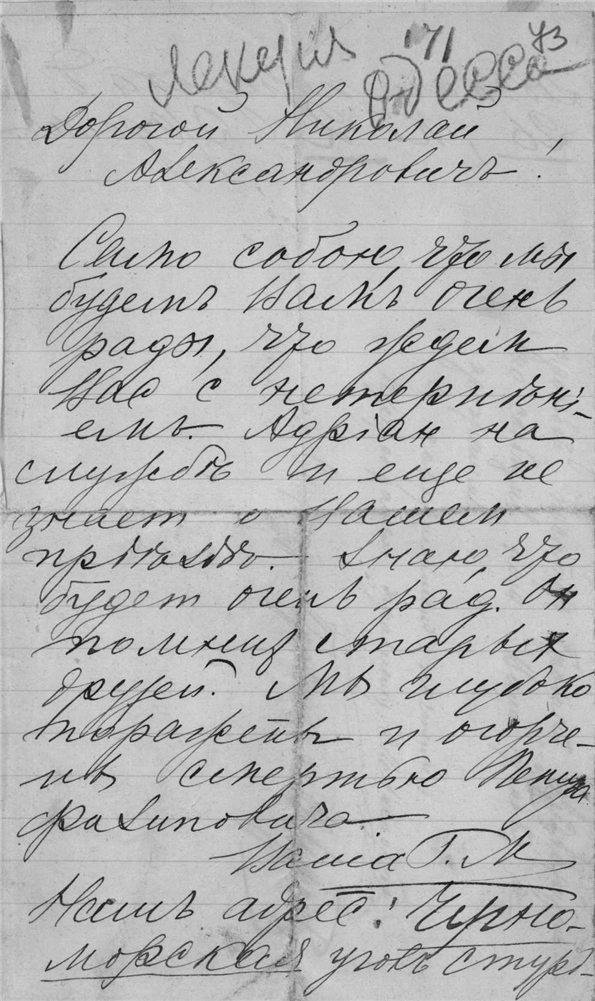 Лекция '71 73
Одесса
Дорогой Николай
Александровичъ!
Само собою, что мы
будемъ Вамъ очень
рады, что ждем
Вас с нетерпѣнi-
емъ. Адрiан на
службѣ и еще не
знает о Вашем
прiѣздѣ. Знаю, что
будет очень рад. Он
помнит старых
друзей. Мы глубоко
поражены и огорче-
ны смертью
Филиповича
Ваша Г. М
Нашъ адрес: Черно-
морская уголъ